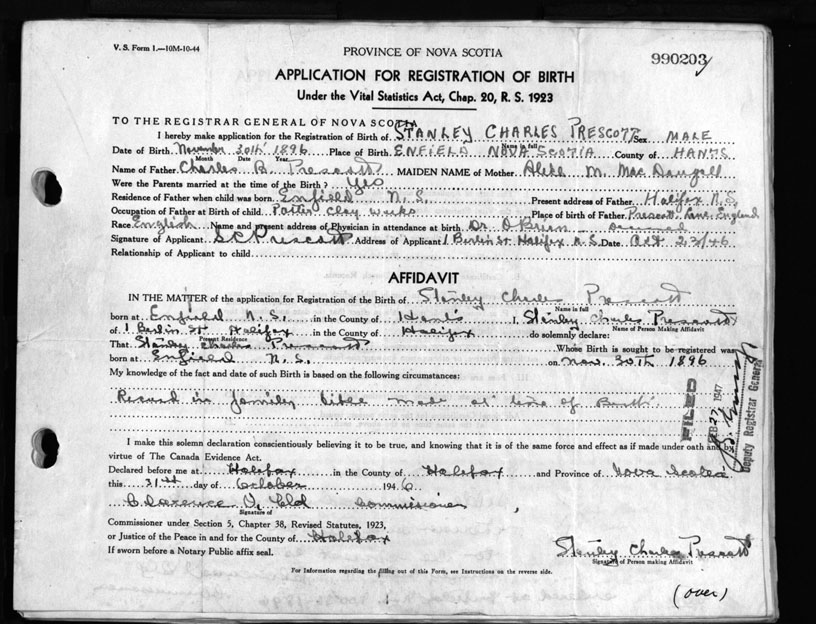 V. S. Form 1.—10M-10-44
PROVINCE OF NOVA SCOTIA
990203
APPLICATION FOR REGISTRATION OF BIRTH
Under the Vital Statistics Act, Chap. 20, R. S. 1923
TO THE REGISTRAR GENERAL OF NOVA SCOTIA
I hereby make application for the Registration of Birth of STANLEY CHARLES PRESCOTT Sex MALE
Name in full
Date of Birth November 30th 1896 Place of Birth ENFIELD NOVA SCOTIA County of HANTS
Month Date Year
Name of Father Charles B. Prescott MAIDEN NAME of Mother M. MacDougall
Were the Parents married at the time of the Birth? Yes
Residence of Father when child was born Enfield N. S. Present address of Father Halifax N.S.
Occupation of Father at Birth of child Potter Clay works Place of birth of Father England
Race English Name and present address of Physician in attendance at birth Dr O'Brien deceased
Signature of Applicant S C Prescott Address of Applicant 1 Berlin St. Halifax N.S. Date Oct 23/46
Relationship of Applicant to child
AFFIDAVIT
IN THE MATTER of the application for Registration of the Birth of Stanley Charles Prescott
Name in full
born at Enfield N. S. in the County of Hants I, Stanley Charles Prescott
Name of Person Making Affidavit
of 1 Berlin St Halifax in the County of Halifax do solemnly declare:
Present Residence
That Stanley Charles Prescott Whose Birth is sought to be registered was
born at Enfield N. S. on Nov. 30th 1896
My knowledge of the fact and date of such Birth is based on the following circumstances:
Record in family bible made at time of Birth
I make this solemn declaration conscientiously believing it to be true, and knowing that it is of the same force and effect as if made under oath and by
virtue of The Canada Evidence Act.
Declared before me at Halifax in the County of Halifax and Province of Nova Scotia
this 31st day of October 1946
Clarence Commissioner
Signature of
Commissioner under Section 5, Chapter 38, Revised Statutes, 1923,
or Justice of the Peace in and for the County of Halifax
If sworn before a Notary Public affix seal.
Stanley Charles Prescott
Signature of Person making Affidavit
For Information regarding the filling out of this Form, see Instructions on the reverse side.
(over)
FILED
FEB 27 1947
Deputy Registrar General